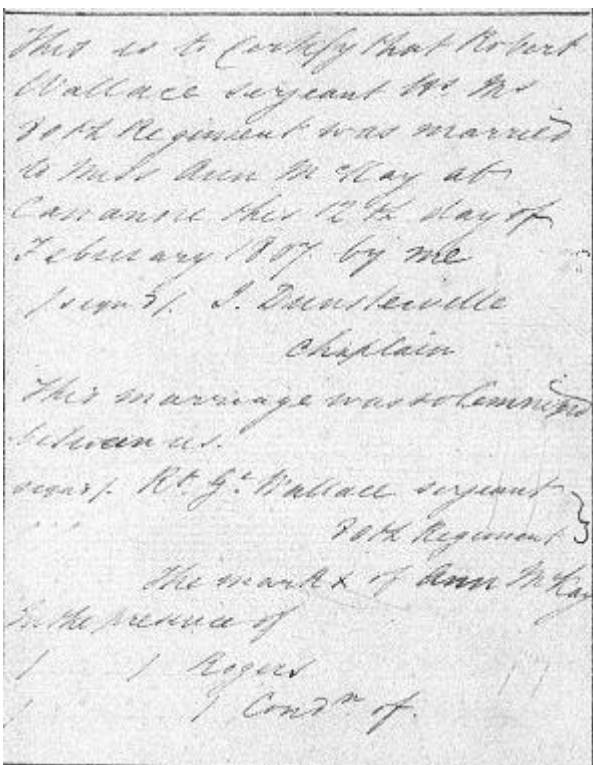 This is to Certify that Robert
Wallace serjeant His Ms
80th Regiment was married
to Miss Ann McKay at
Cannanore this 12th day of
February 1807 by me
/signd/. J. Dunsterville
Chaplain
This marriage was solemnized
between us.
signd/. Rt. Gt. Wallace serjeant
80th Regiment }
The mark x of Ann McKay
In the presence of
/ / Rogers
/ / Condr of.